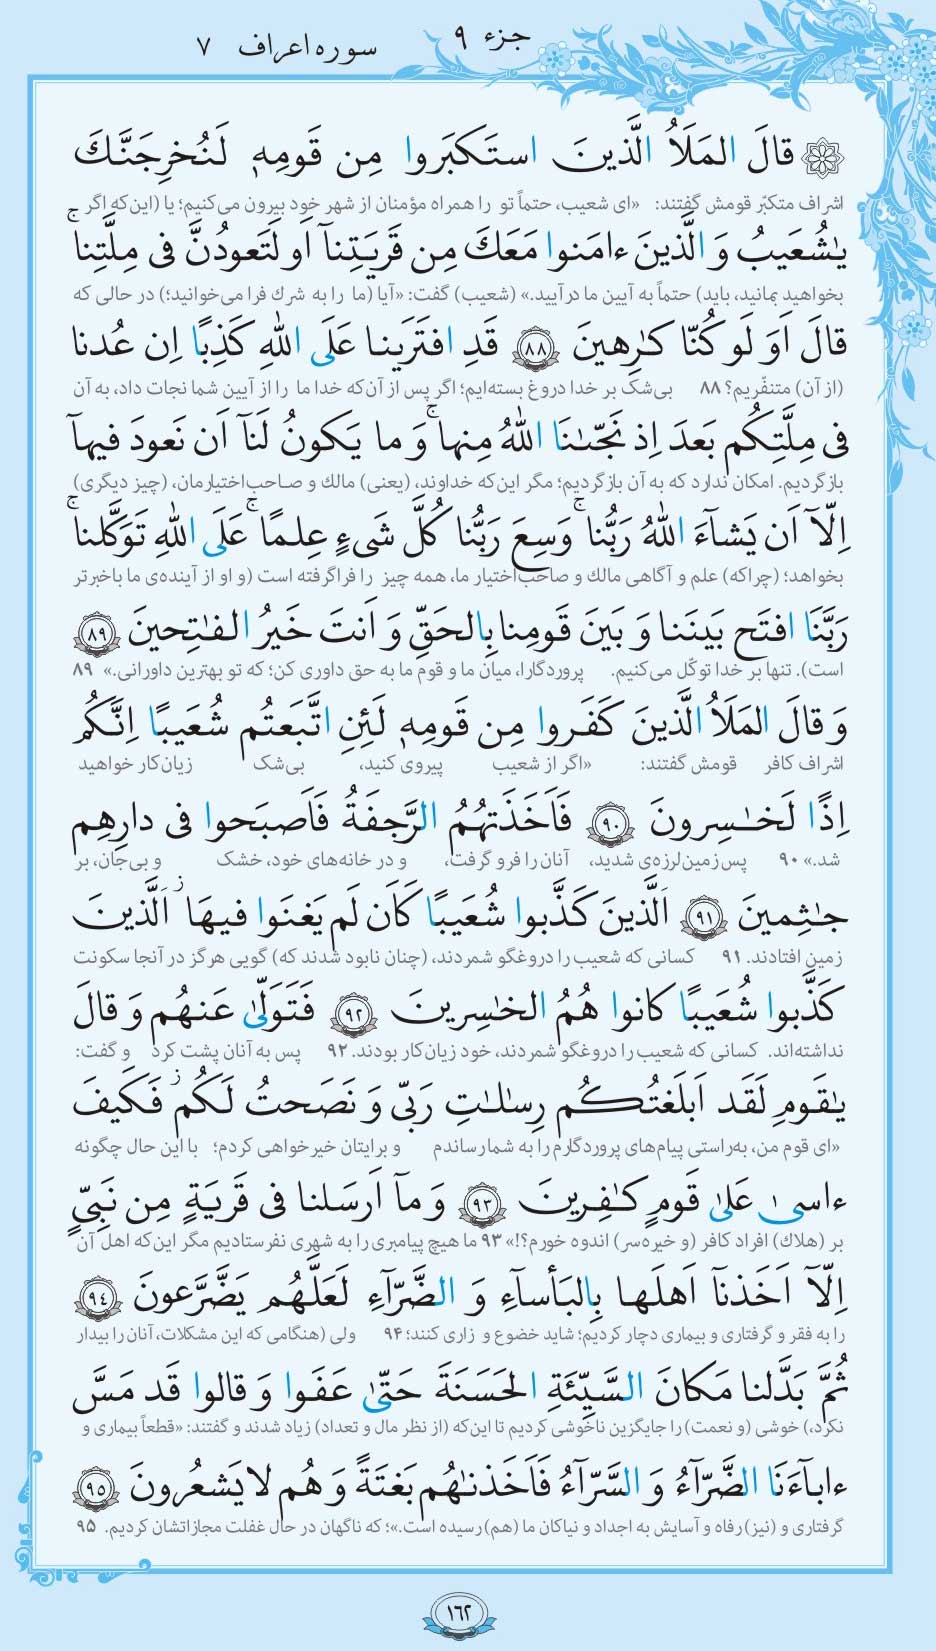 جزء ۹
سوره اعراف ۷
قالَ المَلَأُ الَّذينَ استَكبَروا مِن قَومِهٖ لَنُخرِجَنَّكَ
اشراف متکبّر قومش گفتند: «ای شعیب، حتماً تو را همراه مؤمنان از شهر خود بیرون می‌کنیم؛ یا (این‌که اگر
يٰشُعَيبُ وَ الَّذينَ ءامَنوا مَعَكَ مِن قَريَتِنآ اَو لَتَعودُنَّ فى مِلَّتِناۚ
بخواهید بمانید، باید) حتماً به آیین ما درآیید.» (شعیب) گفت: «آیا (ما را به شرك فرا می‌خوانید؛) در حالی که
قالَ اَوَ لَو كُنّا كٰرِهينَ ﴿۸۸﴾ قَدِ افتَرَينا عَلَى اللهِ كَذِبًا اِن عُدنا
(از آن) متنفّریم؟ ۸۸ بی‌شک بر خدا دروغ بسته‌ایم؛ اگر پس از آن‌که خدا ما را از آیین شما نجات داد، به آن
فى مِلَّتِكُم بَعدَ اِذ نَجّىٰنَا اللهُ مِنهاۚ وَ ما يَكونُ لَنآ اَن نَعودَ فيهآ
بازگردیم. امکان ندارد که به آن بازگردیم؛ مگر این‌که خداوند، (یعنی) مالك و صاحب‌اختیارمان، (چیز دیگری)
اِلّآ اَن يَشآءَ اللهُ رَبُّناۚ وَسِعَ رَبُّنا كُلَّ شَىءٍ عِلمًاۚ عَلَى اللهِ تَوَكَّلناۚ
بخواهد؛ (چراکه) علم و آگاهی مالك و صاحب‌اختیار ما، همه چیز را فراگرفته است (و او از آینده‌ی ما باخبرتر
رَبَّنَا افتَح بَينَنا وَ بَينَ قَومِنا بِالحَقِّ وَ اَنتَ خَيرُ الفٰتِحينَ ﴿۸۹﴾
است). تنها بر خدا توکّل می‌کنیم. پروردگارا، میان ما و قوم ما به حق داوری کن؛ که تو بهترین داورانی.» ۸۹
وَ قالَ المَلَأُ الَّذينَ كَفَروا مِن قَومِهٖ لَئِنِ اتَّبَعتُم شُعَيبًا اِنَّكُم
اشراف کافر قومش گفتند: «اگر از شعیب پیروی کنید، بی‌شک زیان‌کار خواهید
اِذًا لَخٰسِرونَ ﴿۹۰﴾ فَاَخَذَتهُمُ الرَّجفَةُ فَاَصبَحوا فى دارِهِم
شد.» ۹۰ پس زمین‌لرزه‌ی شدید، آنان را فرو گرفت، و در خانه‌های خود، خشک و بی‌جان، بر
جٰثِمينَ ﴿۹۱﴾ اَلَّذينَ كَذَّبوا شُعَيبًا كَاَن لَم يَغنَوا فيهَاۛ اَلَّذينَ
زمین افتادند. ۹۱ کسانی که شعیب را دروغگو شمردند، (چنان نابود شدند که) گویی هرگز در آنجا سکونت
كَذَّبوا شُعَيبًا كانوا هُمُ الخٰسِرينَ ﴿۹۲﴾ فَتَوَلّىٰ عَنهُم وَ قالَ
نداشته‌اند. کسانی که شعیب را دروغگو شمردند، خود زیان‌کار بودند. ۹۲ پس به آنان پشت کرد و گفت:
يٰقَومِ لَقَد اَبلَغتُكُم رِسٰلٰتِ رَبّى وَ نَصَحتُ لَكُم فَكَيفَ
«ای قوم من، به‌راستی پیام‌های پروردگارم را به شما رساندم و برایتان خیرخواهی کردم؛ با این حال چگونه
ءاسىٰ عَلىٰ قَومٍ كٰفِرينَ ﴿۹۳﴾ وَ مآ اَرسَلنا فى قَريَةٍ مِن نَبِىٍّ
بر (هلاك) افراد کافر (و خیره‌سر) اندوه خورم؟!» ۹۳ ما هیچ پیامبری را به شهری نفرستادیم مگر این‌که اهل آن
اِلّآ اَخَذنآ اَهلَها بِالبَأسآءِ وَ الضَّرّآءِ لَعَلَّهُم يَضَّرَّعونَ ﴿۹۴﴾
را به فقر و گرفتاری و بیماری دچار کردیم؛ شاید خضوع و زاری کنند؛ ۹۴ ولی (هنگامی که این مشکلات، آنان را بیدار
ثُمَّ بَدَّلنا مَكانَ السَّيِّئَةِ الحَسَنَةَ حَتّىٰ عَفَوا وَ قالوا قَد مَسَّ
نکرد،) خوشی (و نعمت) را جایگزین ناخوشی کردیم تا این‌که (از نظر مال و تعداد) زیاد شدند و گفتند: «قطعاً بیماری و
ءابآءَنَا الضَّرّآءُ وَ السَّرّآءُ فَاَخَذنٰهُم بَغتَةً وَ هُم لا يَشعُرونَ ﴿۹۵﴾
گرفتاری و (نیز) رفاه و آسایش به اجداد و نیاکان ما (هم) رسیده است.»؛ که ناگهان در حال غفلت مجازاتشان کردیم. ۹۵
۱۶۲